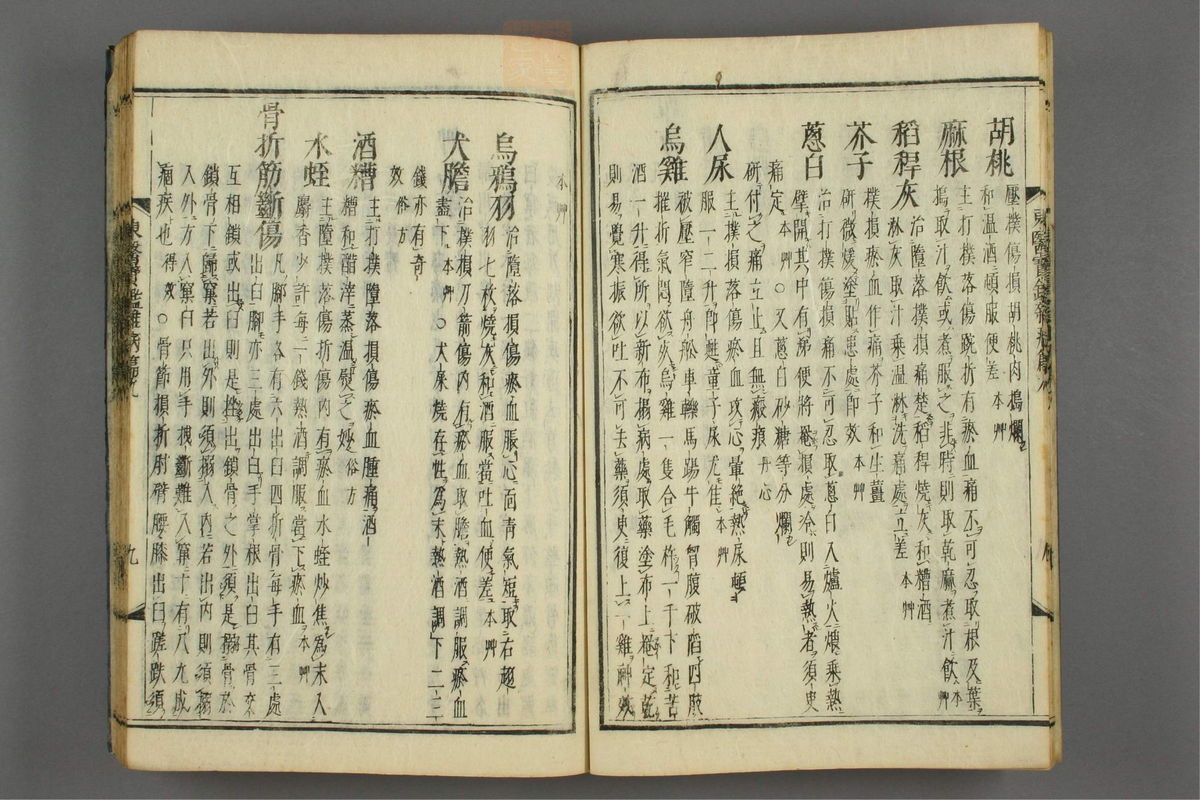 胡桃 壓撲傷損胡桃肉搗爛
和温酒頓服便差 本艸
麻根 主打撲落傷跣折有瘀血痛不可忍取根及葉
搗取汁飲或煮服之非時則取乾麻煮汁飲 本艸
稻稈灰 治墮落撲損痛楚稻稈燒灰和糟酒
淋灰取汁乗温淋洗痛處立差 本艸
芥子 撲損瘀血作痛芥子和生薑
研微煖塗貼患處即效 本艸
葱白 治打撲傷損痛不可忍取葱白入爐火煨乗熱
擘開其中有涕便將罨損處冷則易熱者須臾
痛定 本艸 ○又葱白砂糖等分爛
研付之痛立止且無瘢痕 丹心
人尿 主撲損落傷瘀血攻心暈絶熱尿
服一二升即甦童子尿尤佳 本艸
烏雞 被壓窄墮舟舩車轢馬踢牛觸胷腹破陷四肢
摧折氣悶欲灰烏雞一隻合毛杵一千下和苦
酒一升得所以新布搨病處取藥塗布上罨定乾
則易覺寒振欲吐不可去藥須臾復上一雞神效
本艸
烏鴉羽 治墮落損傷瘀血脹心面青氣短取右超
羽七枚燒灰和酒服當吐血便差 本艸
犬膽 治撲損刀箭傷内有瘀血取膽熱酒調服瘀血
盡下 本艸 ○犬屎燒存性爲末熱酒調下二三
錢亦有奇
效 俗方
酒糟 主打撲墮落損傷瘀血腫痛酒
糟和醋滓蒸温熨之妙 俗方
水蛭 主墮撲落傷折傷内有瘀血水蛭炒焦爲末入
麝香少許每一錢熱酒調服當下瘀血 本艸
骨折筋斷傷 凡腳手各有六出臼四折骨每手有三處
出臼腳亦三處出臼手掌根出臼其骨交
互相鎖或出臼則是挫出鎖骨之外須是搦骨於
鎖骨下歸窠若出外則須搦入内若出内則須搦
入外方入窠臼只用手拽斷難入窠十有八九成
痼疾也 得效 ○骨節損折肘臂腰膝出臼蹉跌須
東醫寶鑑雜病篇九
九